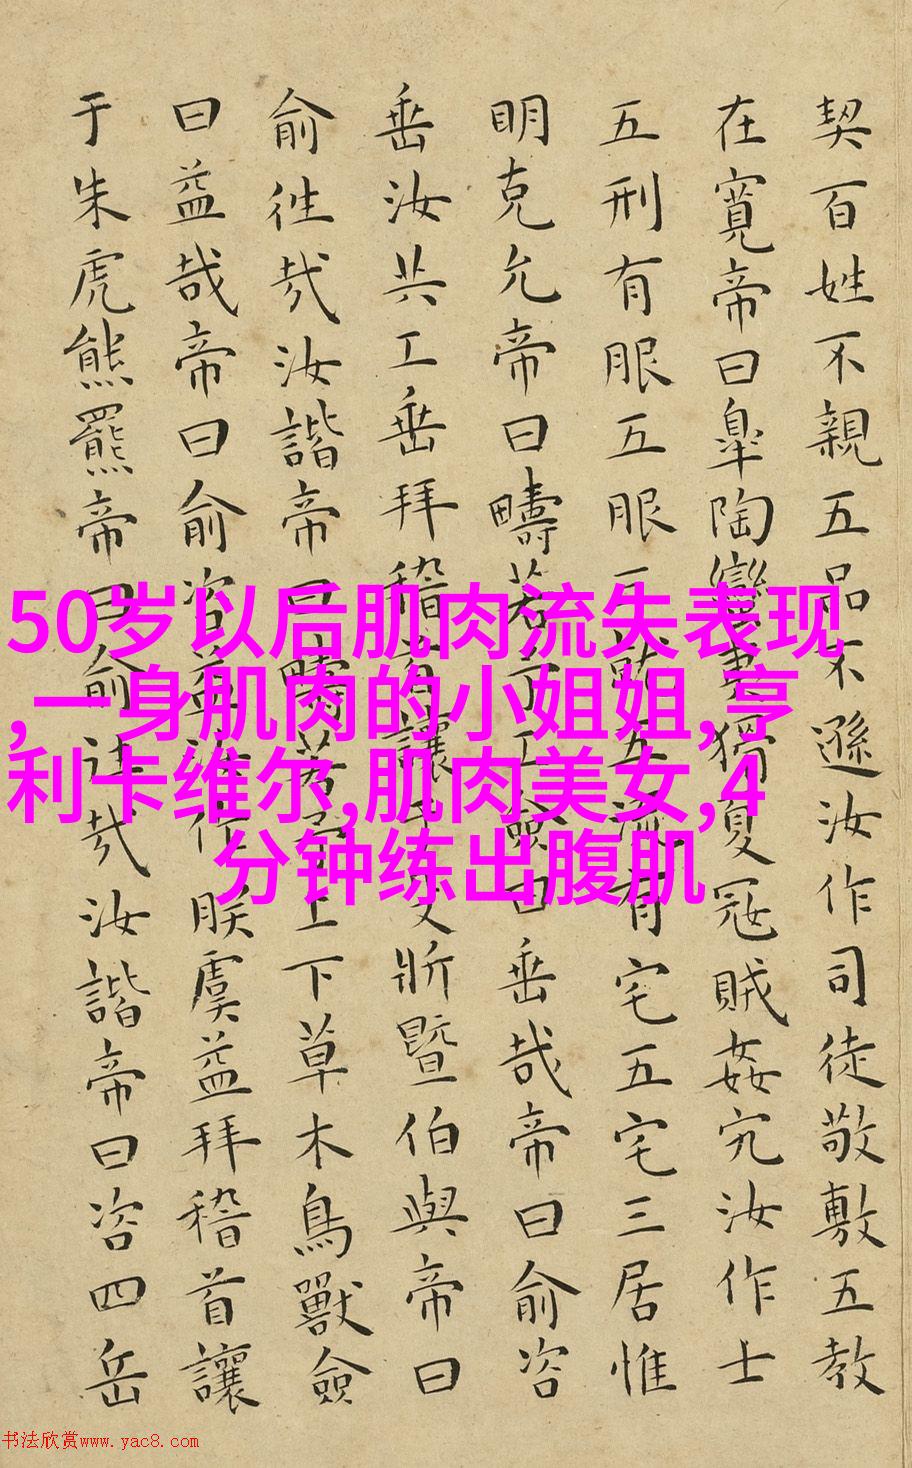 契百姓不親五品不遜汝作司徒敬敷五教
在寬帝曰臯陶蠻夷猾夏冦賊姦宄汝作士
五刑有服五服三就五流有宅五宅三居惟
明克允帝曰疇若予工僉曰垂哉帝曰俞咨
垂汝共工垂拜稽首讓于殳斨暨伯與帝曰
俞徃哉汝諧帝曰疇若予上下草木鳥獸僉
曰益哉帝曰俞咨益汝作朕虞益拜稽首讓
于朱虎熊羆帝曰俞徃哉汝諧帝曰咨四岳
50岁以后肌肉流失表现
,一身肌肉的小姐姐,亨
利卡维尔,肌肉美女,4
分钟练出腹肌
书法欣赏www.yac8.com